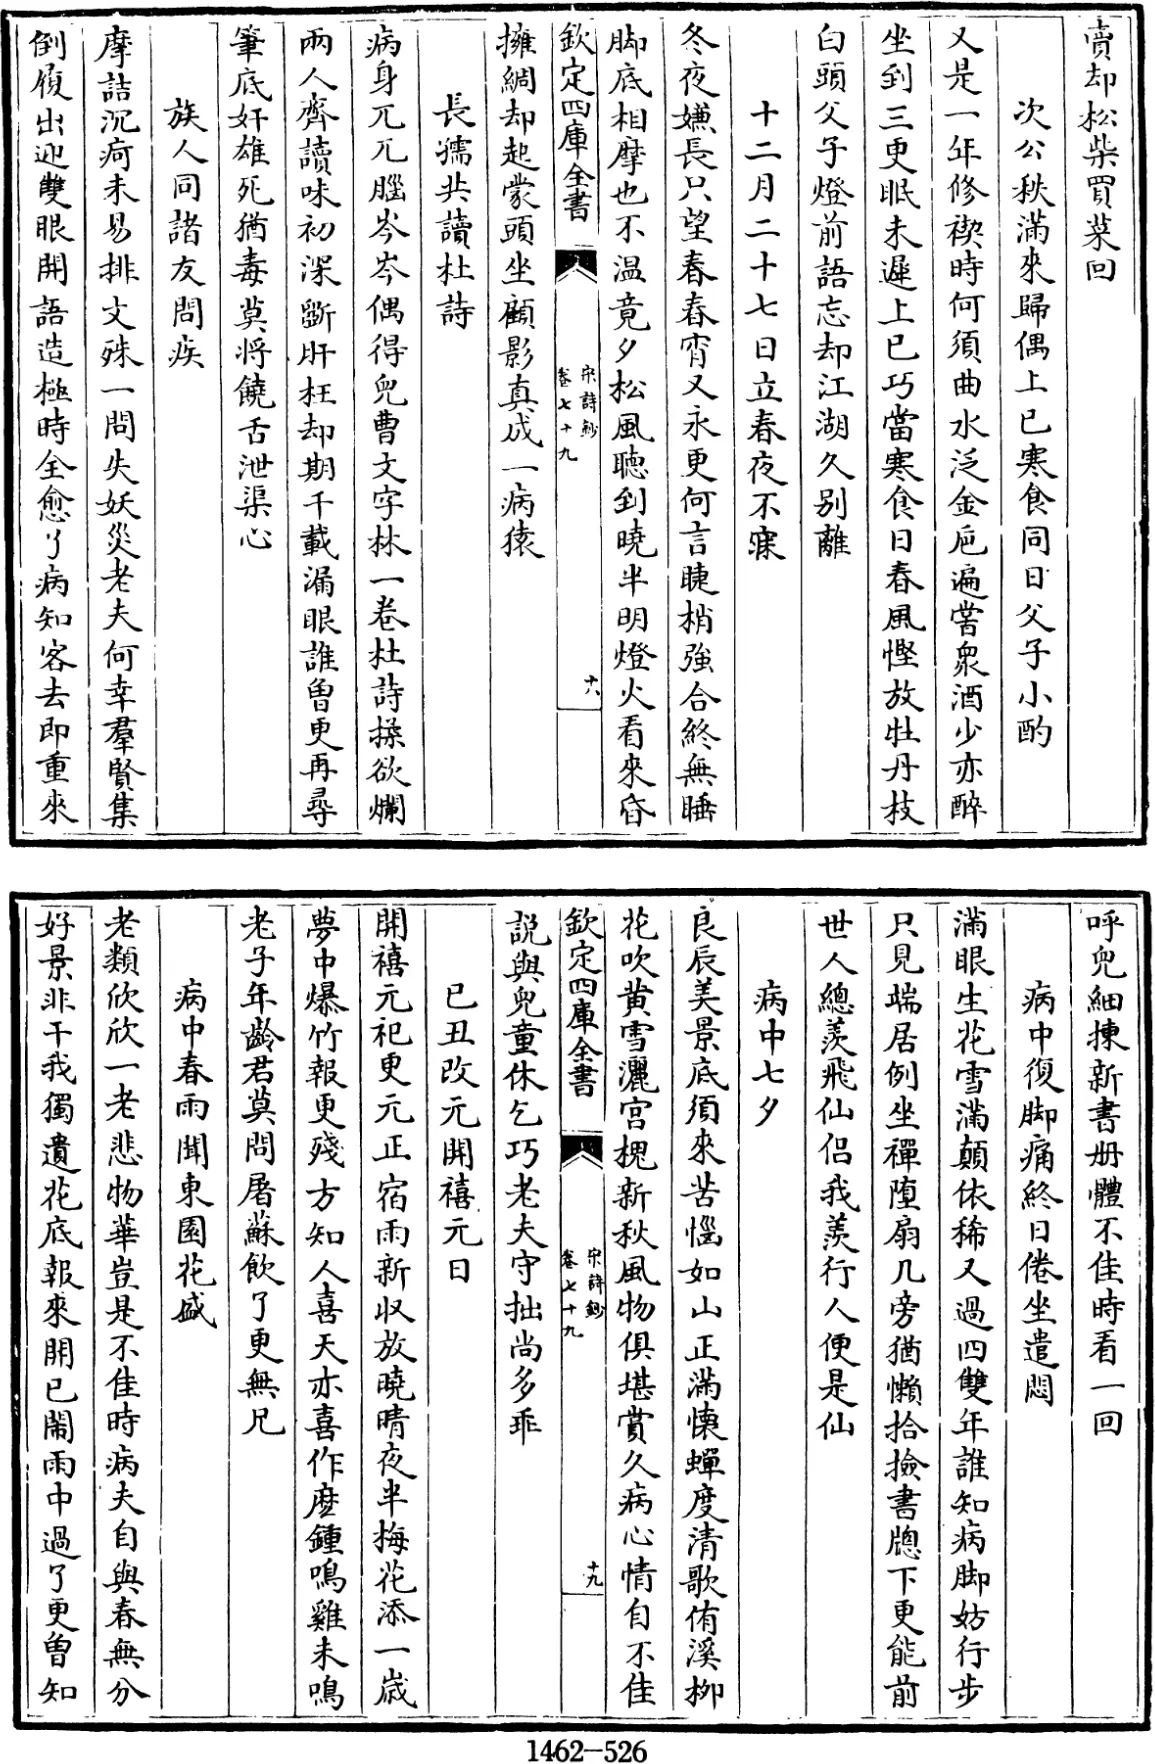 賣却松柴買菜回
次公秩滿來歸偶上巳寒食同日父子小酌
又是一年修禊時何須曲水泛金巵遍嘗衆酒少亦醉
坐到三更眠未遲上巳巧當寒食日春風慳放牡丹枝
白頭父子燈前語忘却江湖久别離
十二月二十七日立春夜不寐
冬夜嫌長只望春春宵又永更何言睫梢強合終無睡
脚底相摩也不溫竟夕松風聽到曉半明燈火看來昏
欽定四庫全書
宋詩鈔
卷七十九
十八
擁綢却起蒙頭坐顧影真成一病猿
長孺共讀杜詩
病身兀兀腦岑岑偶得兒曹文字林一卷杜詩揉欲爛
兩人齊讀味初深斲肝枉却期千載漏眼誰曾更再尋
筆底奸雄死猶毒莫將饒舌泄渠心
族人同諸友問疾
摩詰沉疴未易排文殊一問失妖災老夫何幸羣賢集
倒履出迎雙眼開語造極時全愈了病知客去即重來
呼兒細揀新書册體不佳時看一回
病中復脚痛終日倦坐遣悶
滿眼生花雪滿顛依稀又過四雙年誰知病脚妨行步
只見端居例坐禪墮扇几旁猶懶拾撿書牕下更能前
世人總羨飛仙侣我羨行人便是仙
病中七夕
良辰美景底須來苦惱如山正滿懐蟬度清歌侑溪栁
花吹黄雪灑宫槐新秋風物俱堪賞久病心情自不佳
欽定四庫全書
宋詩鈔
卷七十九
十九
説與兒童休乞巧老夫守拙尚多乖
已丑改元開禧元日
開禧元祀更元正宿雨新収放曉晴夜半梅花添一歳
夢中爆竹報更殘方知人喜天亦喜作麽鍾鳴雞未鳴
老子年齡君莫問屠蘇飲了更無兄
病中春雨聞東園花盛
老類欣欣一老悲物華豈是不佳時病夫自與春無分
好景非干我獨遺花底報來開已鬧雨中過了更曾知
1462—526